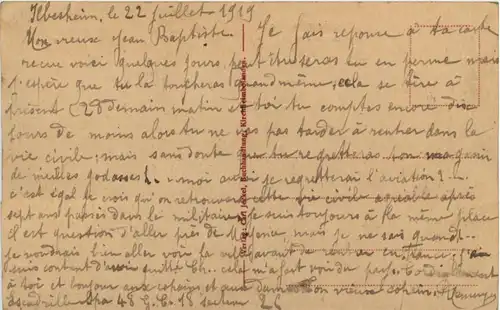 Ilbesheim, le 22 Juillet 1919
Mon vieux Jean Baptiste Je fais reponse à ta carte
recue voici quelques jours, peut être seras tu en perme mais
j'espère que tu la toucheras quand même, cela se tire à
présent (28 demain matin et toi tu comptes encore dix
jours de moins alors tu ne vas pas tarder à rentrer dans la
vie civile; mais sans doute que tu regretteras ton magasin
de vieilles godasses!.. moi aussi je regretterai l'aviation?..
c'est égal je crois qu'on retrouvera cette vie civile agréable après
sept ans passés dans le militaire, je suis toujours à la même place
il est question d'aller près de Mayence, mais je ne sais quand...
je voudrais bien aller voir la ville avant de rentrer en France; j'en
suis content d'avoir quitté Ch.. cela m'a fait voir du pays. Cordialement
à toi et bonjour aux copains et aux dames. Ton vieux copain,
Escadrille Spa 48 G.C. 18 secteur
Verlag: Carl Jaquet, Buchhandlung, Kirchheimbolanden.